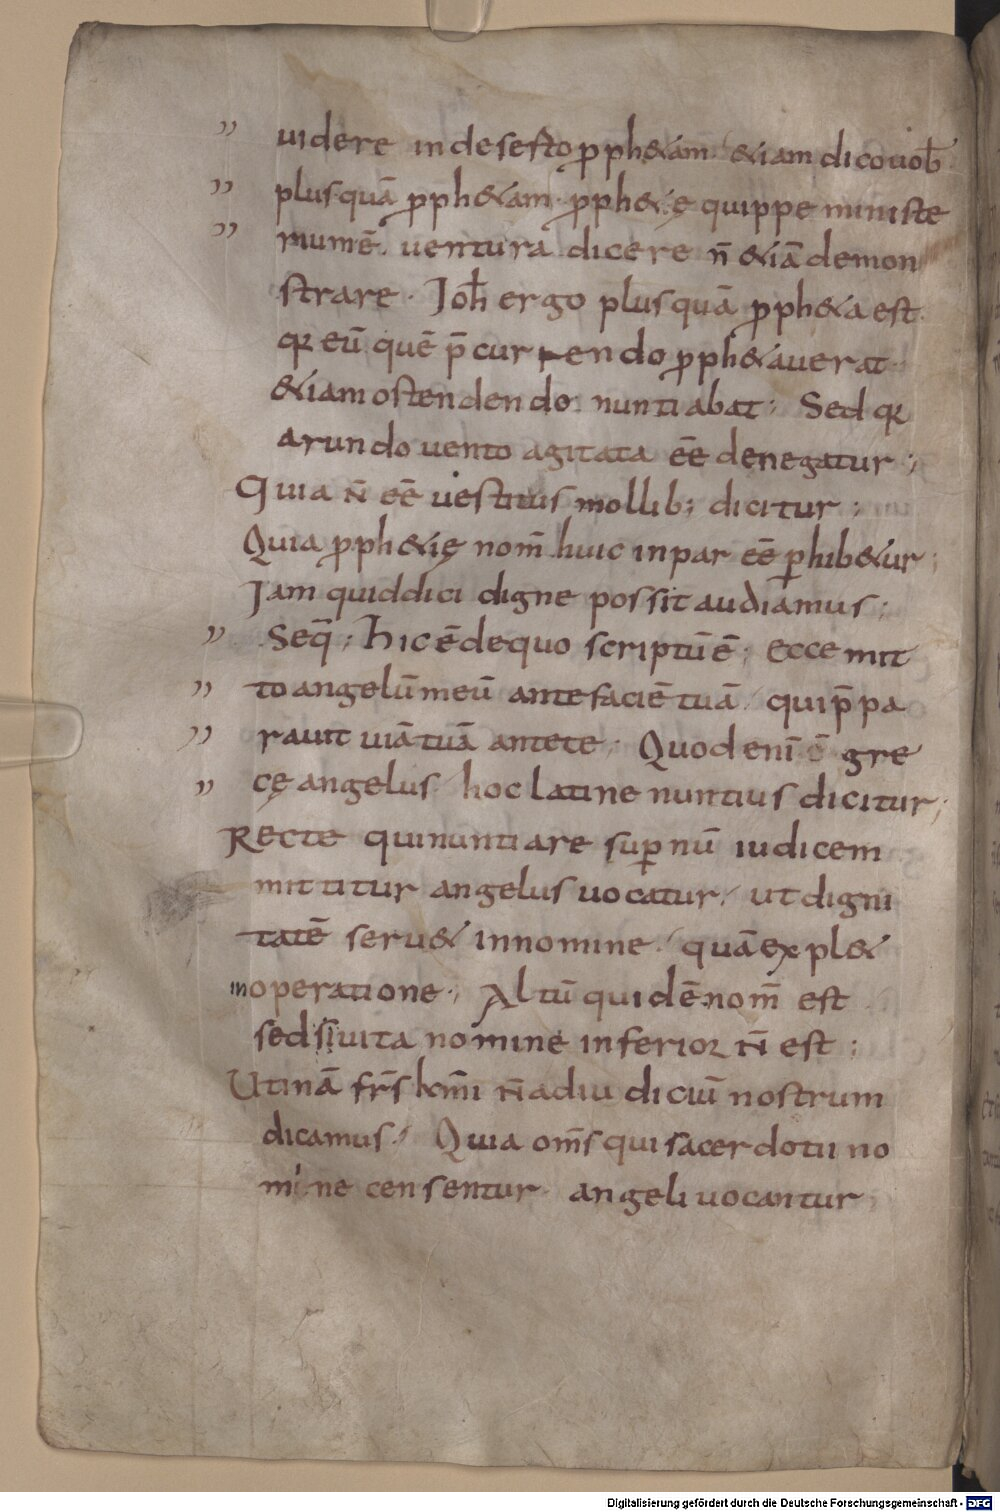 ” uidere in desesto p̄ph&am· &iam dico uob̄
” plusquā p̄ph&am· p̄ph&ię quippe ministe
” riumē· uentura dicere n̄ &iā demon
strare· Joh̄ ergo plusquā p̄ph&a est·
qr eū quē p̄currendo p̄ph&auerat·
&iam ostendendo nuntiabat; Sed qr
arundo uento agitata eē denegatur;
Quia n̄ eē uestitus mollib; dicitur;
Quia p̄ph&ię nom̄ huic inpar eē p̱hib&ur;
Jam quid dici digne possit audiamus;
” Seq̄; Hic ē de quo scriptū ē; ecce mit
” to angelū meū ante faciē tuā/ qui p̄pa
” rauit uiā tuā ante te; Quod enī grę
” cę angelus/ hoc latine nuntius dicitur;
Recte qui nuntiare sup̱nū iudicem
mittitur angelus uocatur/ ut digni
tatē seru& in nomine/ quā expl&
in operatione; Altū quidē nom̄ est
sed si uita nomine inferior n̄ est;
Utinā frs̄ km̄i n̄ ad iudiciū nostrum
dicamus/ Quia om̄s qui sacerdotii no
mine censentur· angeli uocantur
Digitalisierung gefördert durch die Deutsche Forschungsgemeinschaft - DFG